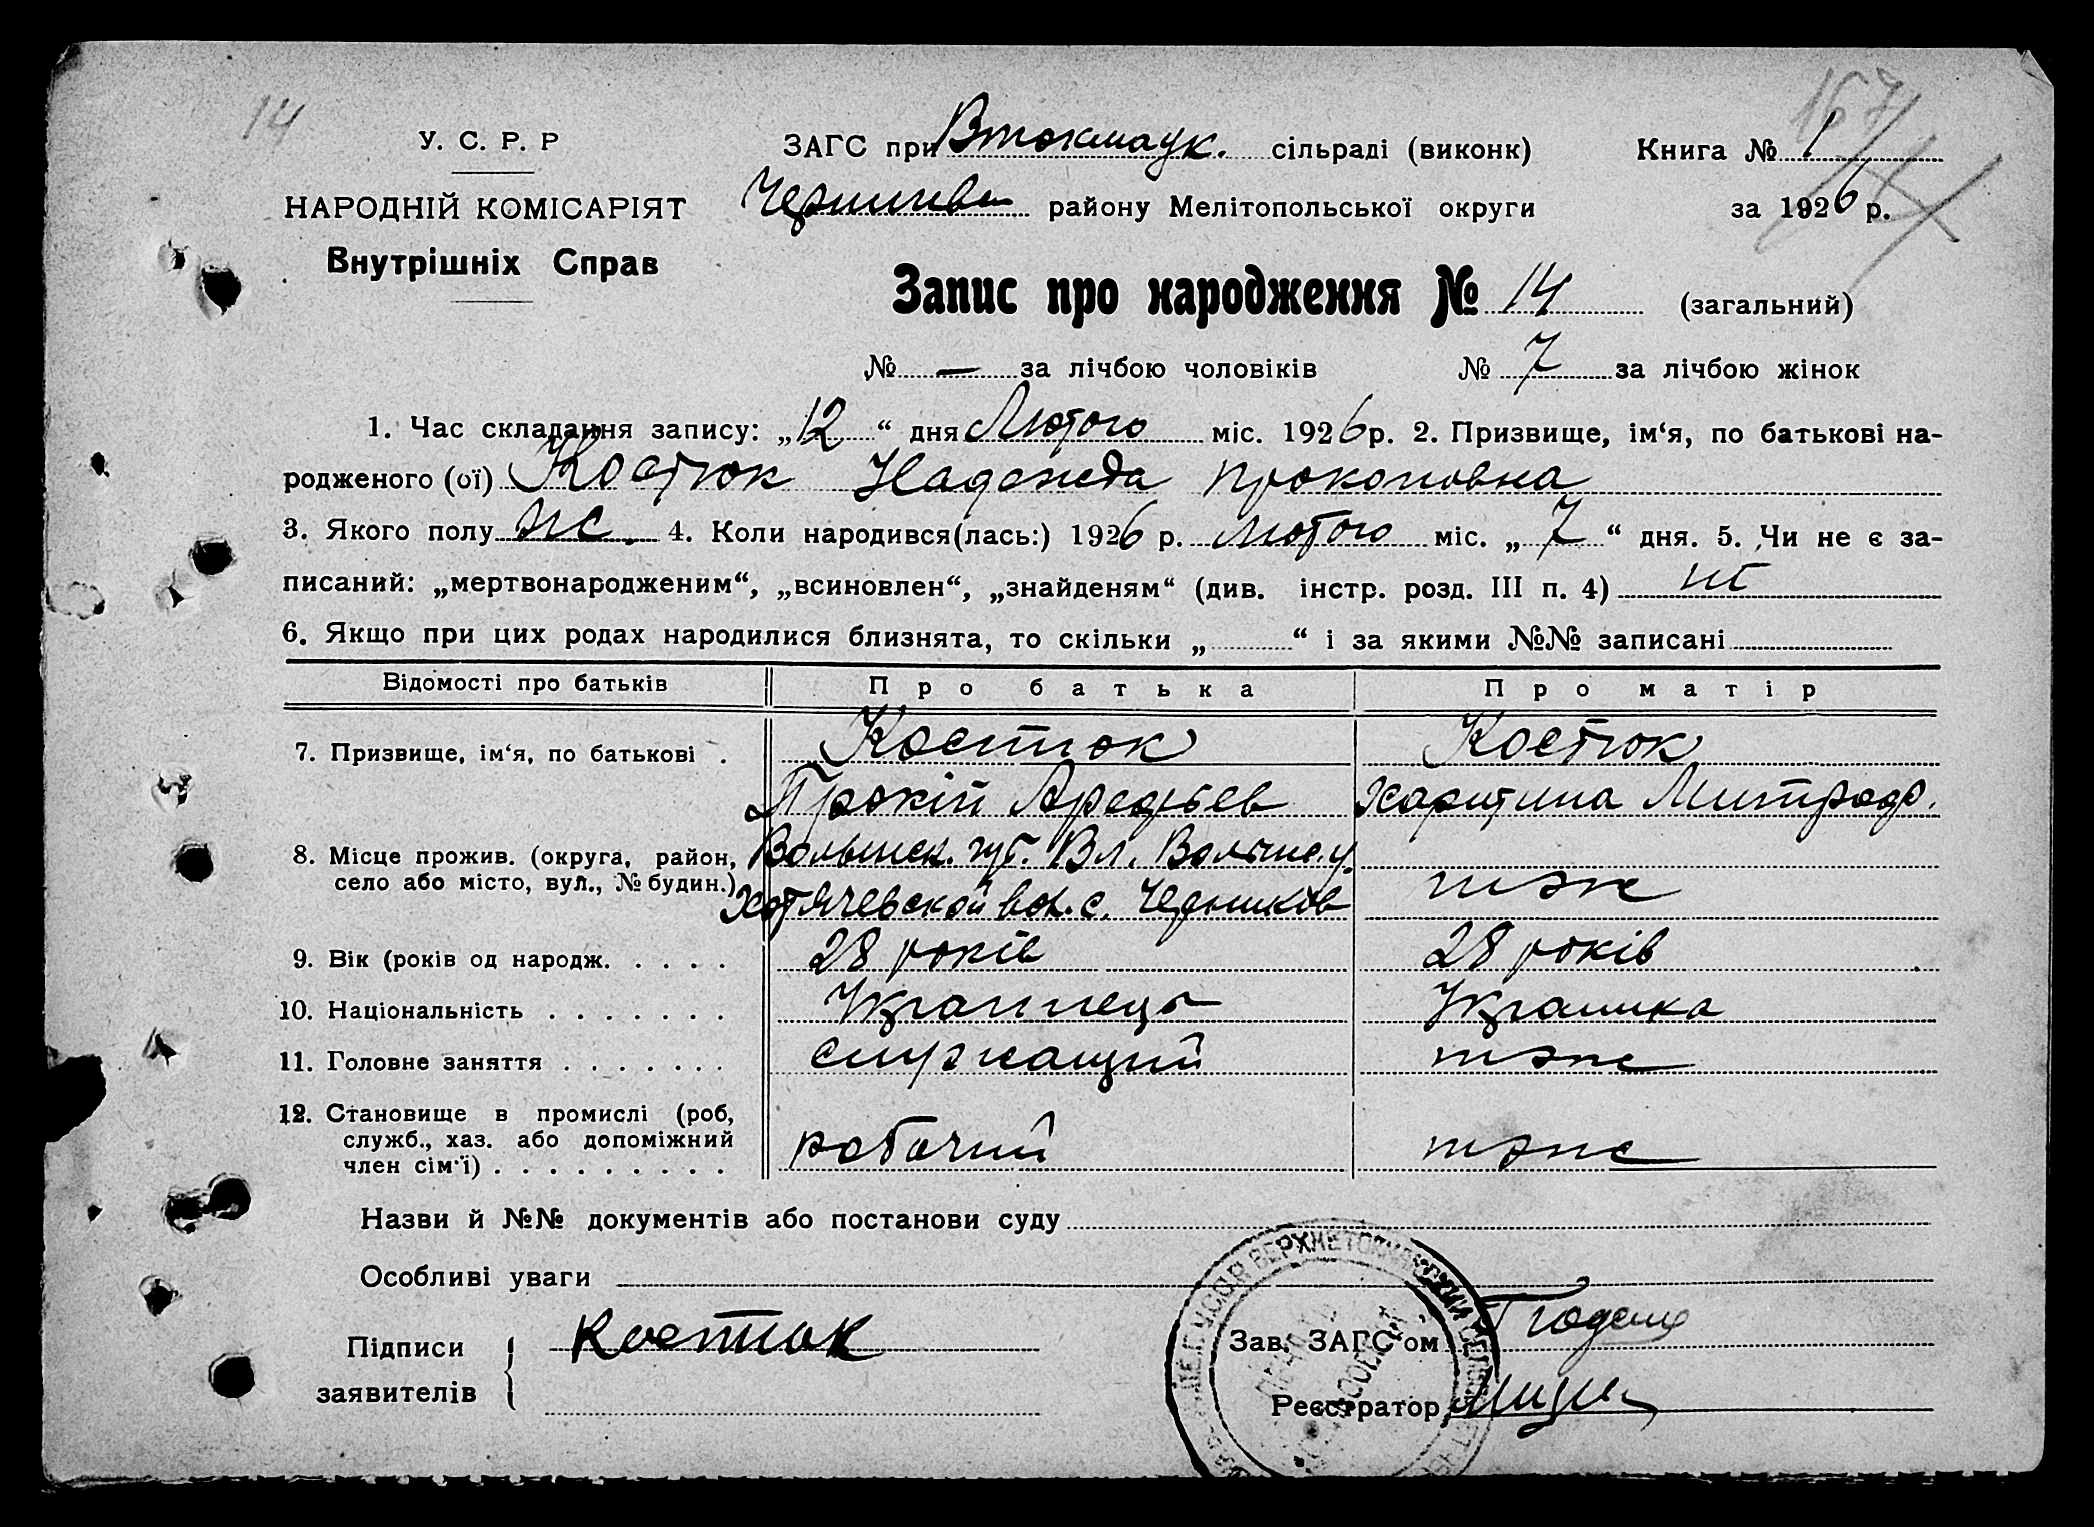 14
157
У. С. Р. Р
НАРОДНІЙ КОМІСАРІЯТ
Внутрішніх Справ
ЗАГС при Втокмаук. сільраді (виконк)
Книга № 1
району Мелітопольської округи
за 1926 р.
Запис про народження № 14 (загальний)
№ — за лічбою чоловіків № 7 за лічбою жінок
1. Час складання запису: „12“ дня Лютого міс. 1926 р. 2. Призвище, ім‘я, по батькові на-
родженого (ої) Костюк Надежда Прокоповна
3. Якого полу ж. 4. Коли народився(лась:) 1926 р. лютого міс. „7“ дня. 5. Чи не є за-
писаний: „мертвонародженим“, „всиновлен“, „знайденям“ (див. інстр. розд. III п. 4)
6. Якщо при цих родах народилися близнята, то скільки „ “ і за якими №№ записані
Відомості про батьків Про батька Про матір
7. Призвище, ім‘я, по батькові . Костюк Костюк
Прокій Харитина Митрофр.
8. Місце прожив. (округа, район, Волынск. губ. Вл. Волынс. у.
село або місто, вул., № будин.) Хотячевской вол. с. Черников тож
9. Вік (років од народж. . . . . 28 років 28 років
10. Національність . . . . . . . Українець Українка
11. Головне заняття . . . . . . . служащий тож
12. Становище в промислі (роб,
служб., хаз. або допоміжний
член сім‘ї) . . . . . . . . . рабочий тож
Назви й №№ документів або постанови суду
Особливі уваги
Підписи
заявителів
Костюк
Зав. ЗАГС‘ом
Реєстратор